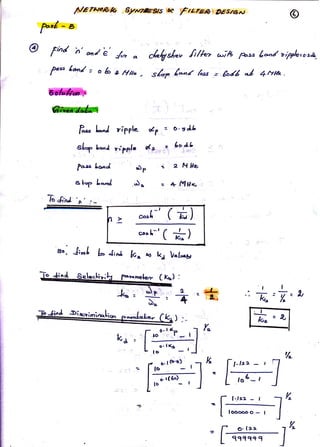 NETWORK SYNTHESIS & FILTER DESIGN
part - B
find 'n' and ε for a chebyshev filter with pass band ripple 0.5db
pass band = 0 to 2 MHz, stop band loss = 60db at 4 MHz.
Solution :-
Given data
Pass band ripple αp = 0.5db
Stop band ripple αs = 60db
pass band ωp = 2 MHz
stop band ωs = 4 MHz
To find 'n' :-
n ≥ cosh⁻¹ (1/kd) / cosh⁻¹ (1/ks)
so, first to find ks & kd Values
To find Selectivity parameter (ks) :
ks = ωp/ωs = 2/4 = 1/2
∴ 1/ks = 1/½ = 2
1/ks = 2
To find Discrimination parameter (kd) :-
kd = [10^0.1αp - 1 / 10^0.1αs - 1]^½
= [10^0.1(0.5) - 1 / 10^0.1(60) - 1]^½ = [1.122 - 1 / 10^6 - 1]^½
= [1.122 - 1 / 1000000 - 1]^½
= [0.122 / 999999]^½